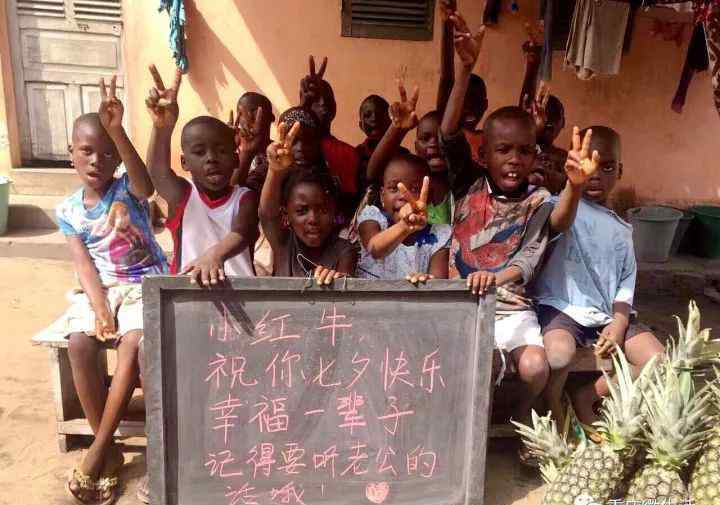 小红牛，
祝你七夕快乐
幸福一辈子
记得要听老公的
话哦！